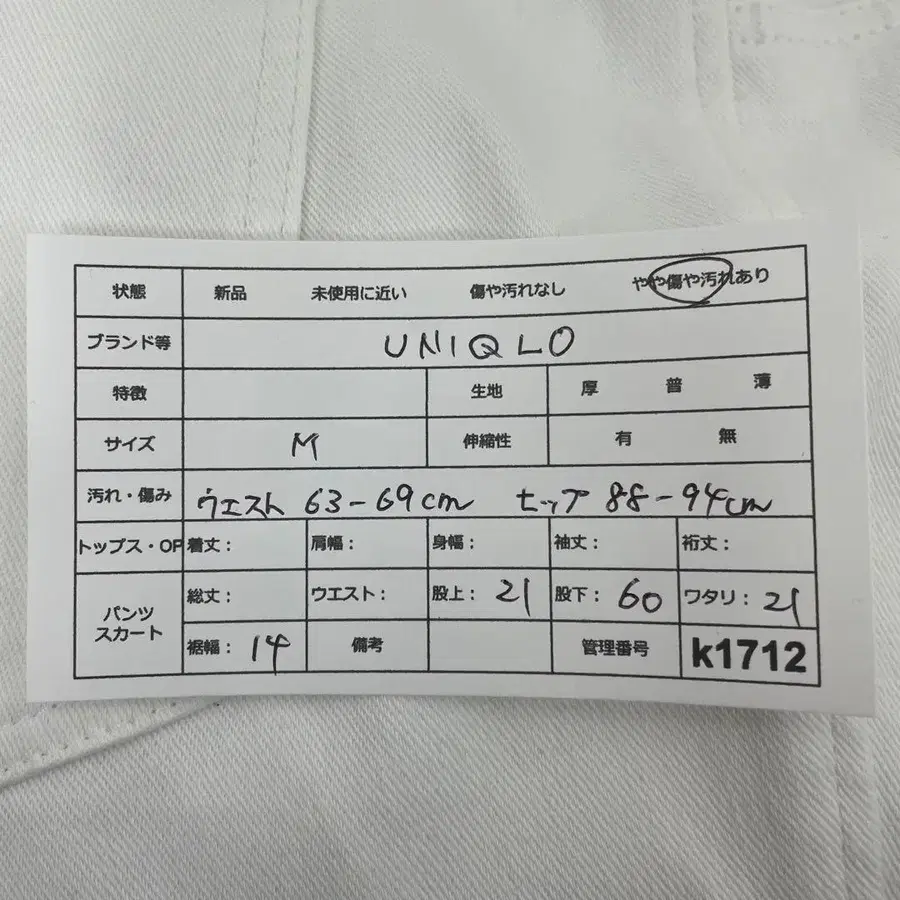 状態 新品 未使用に近い 傷や汚れなし やや傷や汚れあり
ブランド等 UNIQLO
特徴 生地 厚 普 薄
サイズ M 伸縮性 有 無
汚れ・傷み ウエスト 63-69cm ヒップ 88-94cm
トップス・OP 着丈: 肩幅: 身幅: 袖丈: 裄丈:
パンツ
スカート
総丈: ウエスト: 股上: 21 股下: 60 ワタリ: 21
裾幅: 14 備考 管理番号 k1712